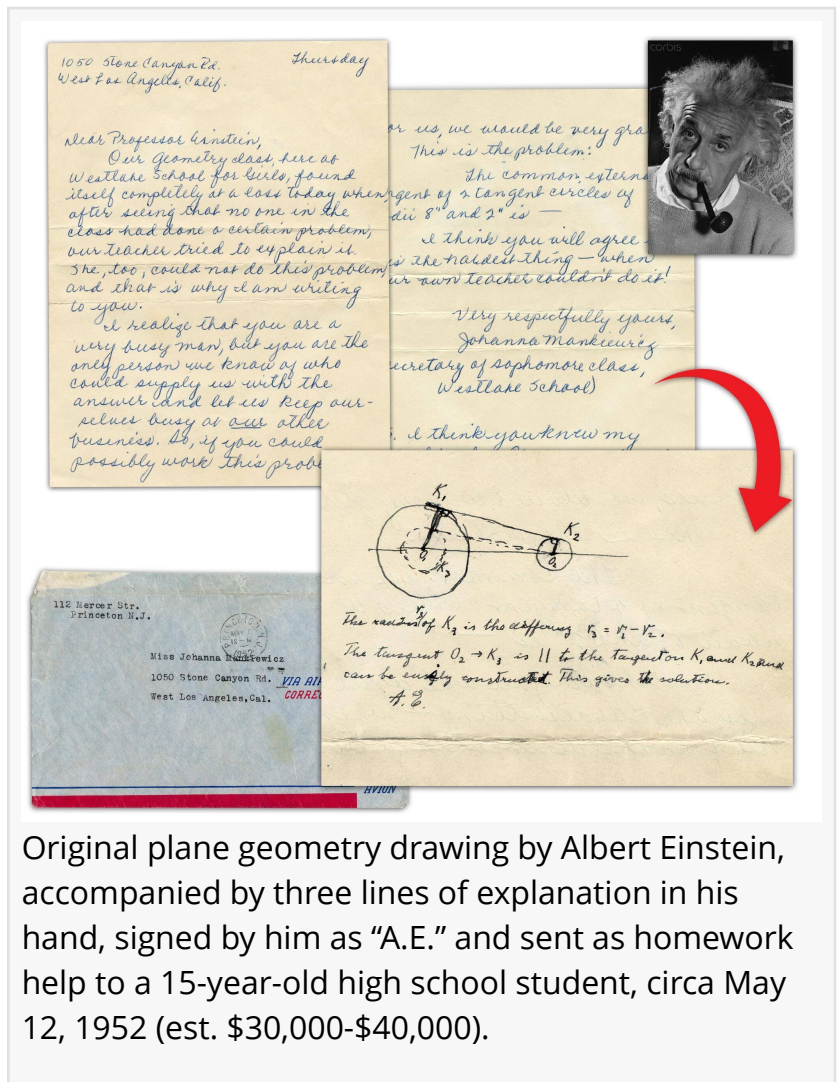 1050 Stone Canyon Rd.
Thursday
West Los Angeles, Calif.
Dear Professor Einstein,
Our Geometry class, here at
Westlake School for Girls, found
itself completely at a loss today when,
after seeing that no one in the
class had done a certain problem,
our teacher tried to explain it.
She, too, could not do this problem,
and that is why I am writing
to you.
I realize that you are a
very busy man, but you are the
only person we know of who
could supply us with the
answer and let us keep our-
selves busy at our other
business. So, if you could
possibly work this proble
or us, we would be very gra
This is the problem:
The common, externa
ngent of 2 tangent circles of
dii 8" and 2" is —
I think you will agree
is the hardest thing — when
ur own teacher couldn't do it!
Very respectfully yours,
Johanna Mankiewicz
ecretary of sophomore class,
Westlake School)
. I think you knew my
corbis
K1
K2
O1
K3
O2
The radius r3 of K3 is the differing r3 = r1 - r2.
The tangent O2 → K3 is || to the tangent on K1 and K2 and
can be easily constructed. This gives the solution.
A.E.
112 Mercer Str.
Princeton N.J.
Miss Johanna Mankiewicz
1050 Stone Canyon Rd.
West Los Angeles,Cal.
VIA AI
CORREO
AVION
Original plane geometry drawing by Albert Einstein,
accompanied by three lines of explanation in his
hand, signed by him as “A.E.” and sent as homework
help to a 15-year-old high school student, circa May
12, 1952 (est. $30,000-$40,000).